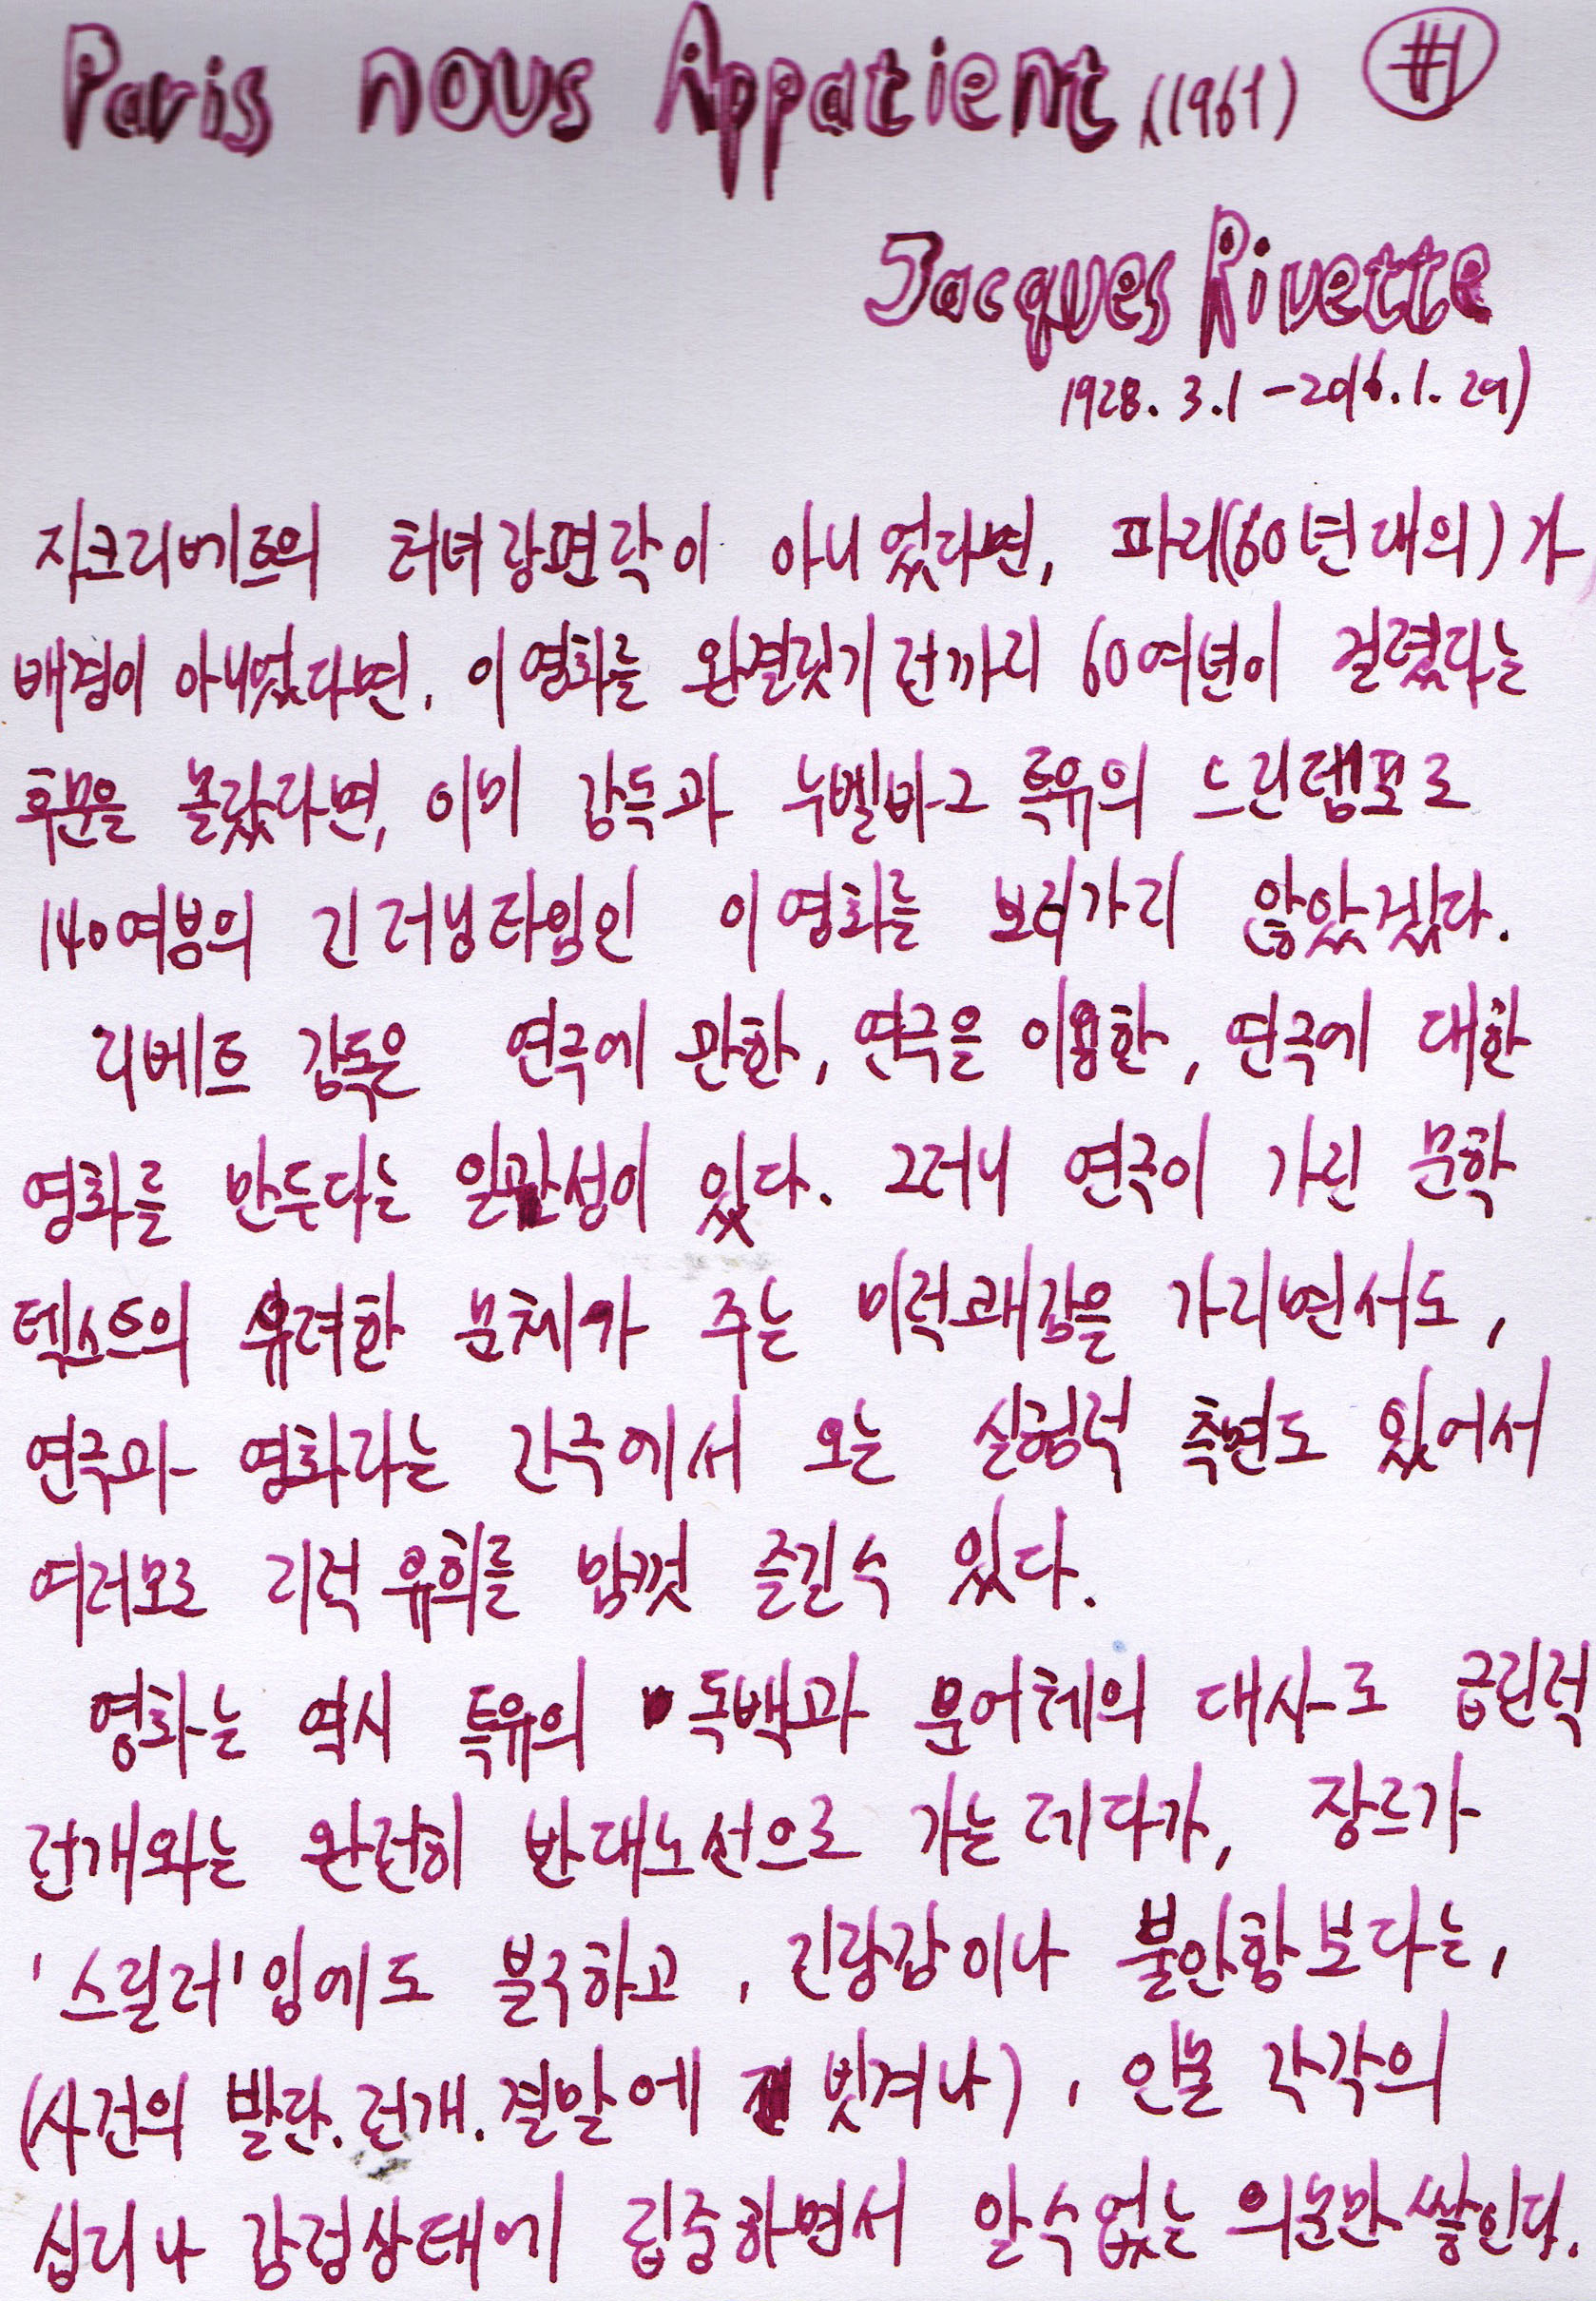 Paris nous Appatient (1961) #1
Jacques Rivette
1928. 3.1 - 2016.1.29)
자크리베트의 처녀장편작이 아니었다면, 파리(60년대의)가
배경이 아니었다면, 이영화를 완결짓기전까지 60여년이 걸렸다는
후문을 몰랐다면, 이미 감독과 누벨바그 특유의 느린템포로
140여분의 긴러닝타임인 이영화를 보러가지 않았겠다.
리베트 감독은 연극에 관한, 연극을 이용한, 연극에 대한
영화를 만두다는 일관성이 있다. 그러니 연극이 가진 문학
텍스트의 유려한 문체가 주는 미적쾌감을 가지면서도,
연극과 영화라는 간극에서 오는 실험적 측면도 있어서
여러모로 지적 유희를 맘껏 즐길수 있다.
영화는 역시 특유의 독백과 문어체의 대사로 급진적
전개와는 완전히 반대노선으로 가는데다가, 장르가
'스릴러'임에도 불구하고, 긴장감이나 불안함보다는,
(사건의 발단.전개.결말에 벗겨나), 인물 각각의
심리나 감정상태에 집중하면서 알수없는 의눈만 쌓인다.